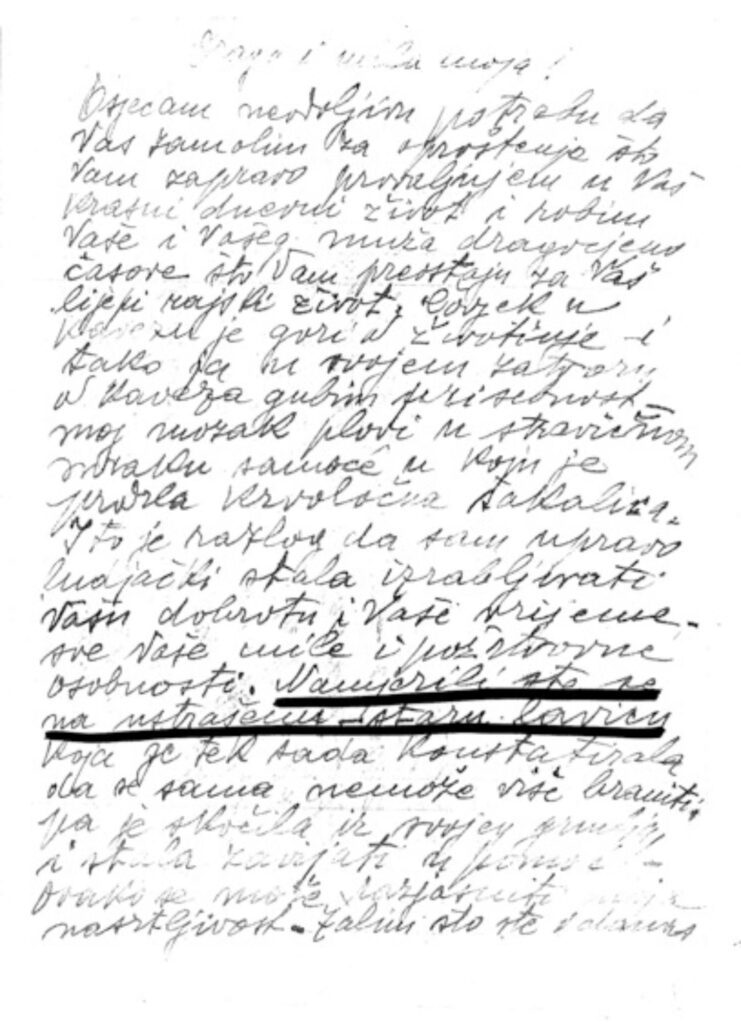 Draga i mila moja!
Osjećam neodoljivu potrebu da
Vas zamolim za oproštenje što
Vam zapravo provaljujem u Vaš
krasni dnevni život i robim
Vaše i Vašeg muža dragocjene
časove što Vam preostaju za Vaš
lijepi rajski život. Čovjek u
kavezu je gori od životinje i
tako ja u svojem zatvoru
od kaveza gubim prisebnost
moj mozak plovi u stravičnom
mraku samoće u koju je
prodrla krvoločna šakalica.
I to je razlog da sam upravo
luđački stala izrabljivati
Vašu dobrotu i Vaše vrijeme -
sve Vaše mile i požrtvovne
osobnosti. Namjerili ste se
na ustrašenu staru lavicu
koja je tek sada konstatirala
da se sama nemože više braniti,
pa je skočila iz svojeg
i stala zavijati u pomoć -
ovako se može razjasniti moja
nasrtljivost - Žalim što ste i danas